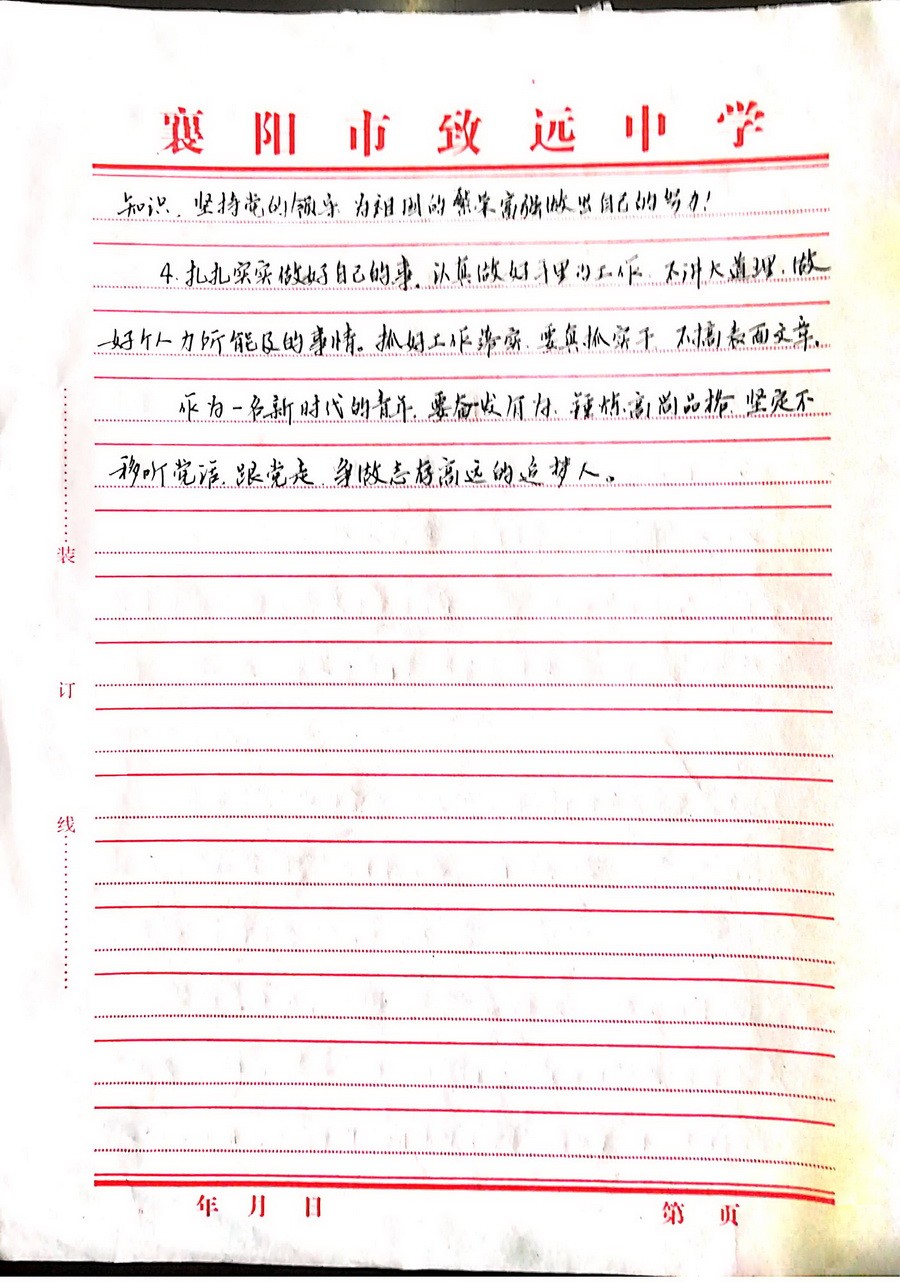 襄阳市致远中学
知识，坚持党的领导，为祖国的繁荣富强做出自己的努力！
4.扎扎实实做好自己的事。认真做好手里的工作，不讲大道理，做
好个人力所能及的事情。抓好工作落实，要真抓实干，不搞表面文章。
作为一名新时代的青年，要奋发有为，锤炼高尚品格，坚定不
移听党话，跟党走，争做志存高远的追梦人。
装
订
线
年 月 日
第 页